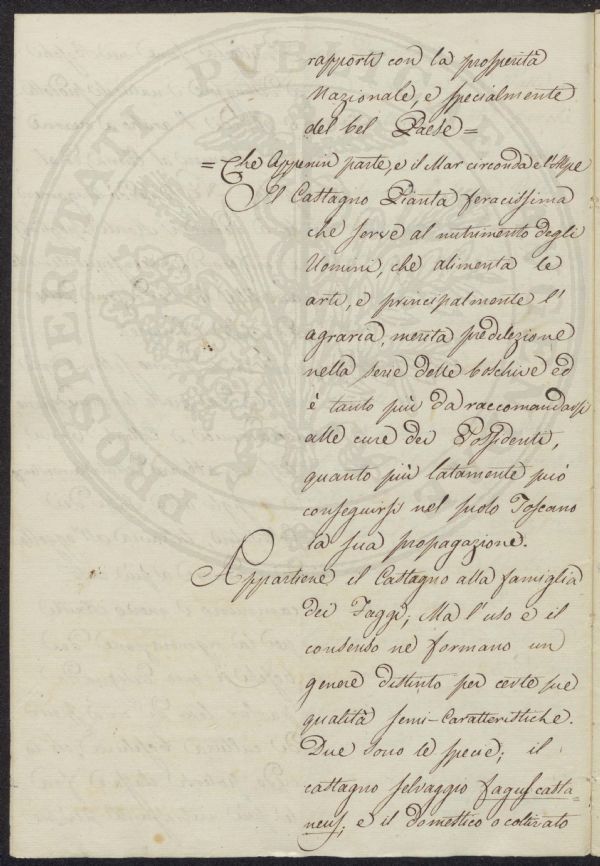 rapporti con la prosperità
Nazionale, e specialmente
del bel Paese=
=Che Appenin parte, e il Mar circonda e l'Alpe
Il Castagno Pianta feracissima
che serve al nutrimento degli
Uomini, che alimenta le
arti, e principalmente l'
agraria, merita predilezione
nella serie delle boschive ed
è tanto più da raccomandarsi
alle cure dei Possidenti,
quanto più latamente può
conseguirsi nel suolo Toscano
la sua propagazione.
Appartiene il Castagno alla famiglia
dei Faggi; Ma l'uso e il
consenso ne formano un
genere distinto per certe sue
qualità semi-caratteristiche.
Due sono le specie; il
castagno selvaggio fagus casta=
neus; e il domestico o coltivato
PROSPERITATI PUBLICAE